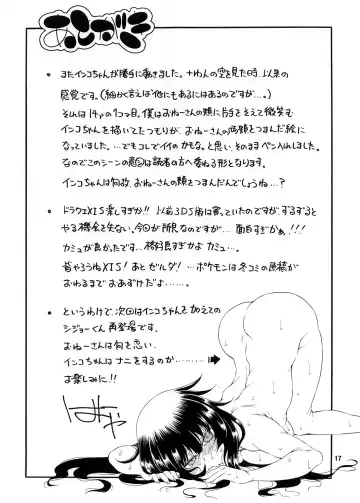 あとがき
・またインコちゃんが勝手に動きました。十わんの空を見た時以来の
感覚です。(細かく言えば他にもあるにはあるのですが…。)
それは14Pの1コマ目。僕はおねーさんの頬に片手をそえて微笑む
インコちゃんを描いてたつもりが、おねーさんの両頬をつまんだ絵に
なっていました。…でもコレでイイのかもな。と思い、そのままペン入れしました。
なのでこのシーンの意図は読者の方へ委ねる形となります。
インコちゃんは何故、おねーさんの頬をつまんだんでしょうね…?
・ドラクエXIS楽しすぎか!! 以前3DS版は買っていたのですが、ずるずると
やる機会を失い、今回が初見なのですが… 面白すぎかぁ!!!
カミュが良かったです… 格好良すぎかよカミュ…。
皆やろうねXIS! あとゼルダ!… …ポケモンは冬コミの原稿が
おわるまでおあずけだよ……。
・というわけで、次回はインコちゃんを加えての
シジョーくん再登場です。
おねーさんは何を思い、
インコちゃんはナニをするのか………
お楽しみに!!
17